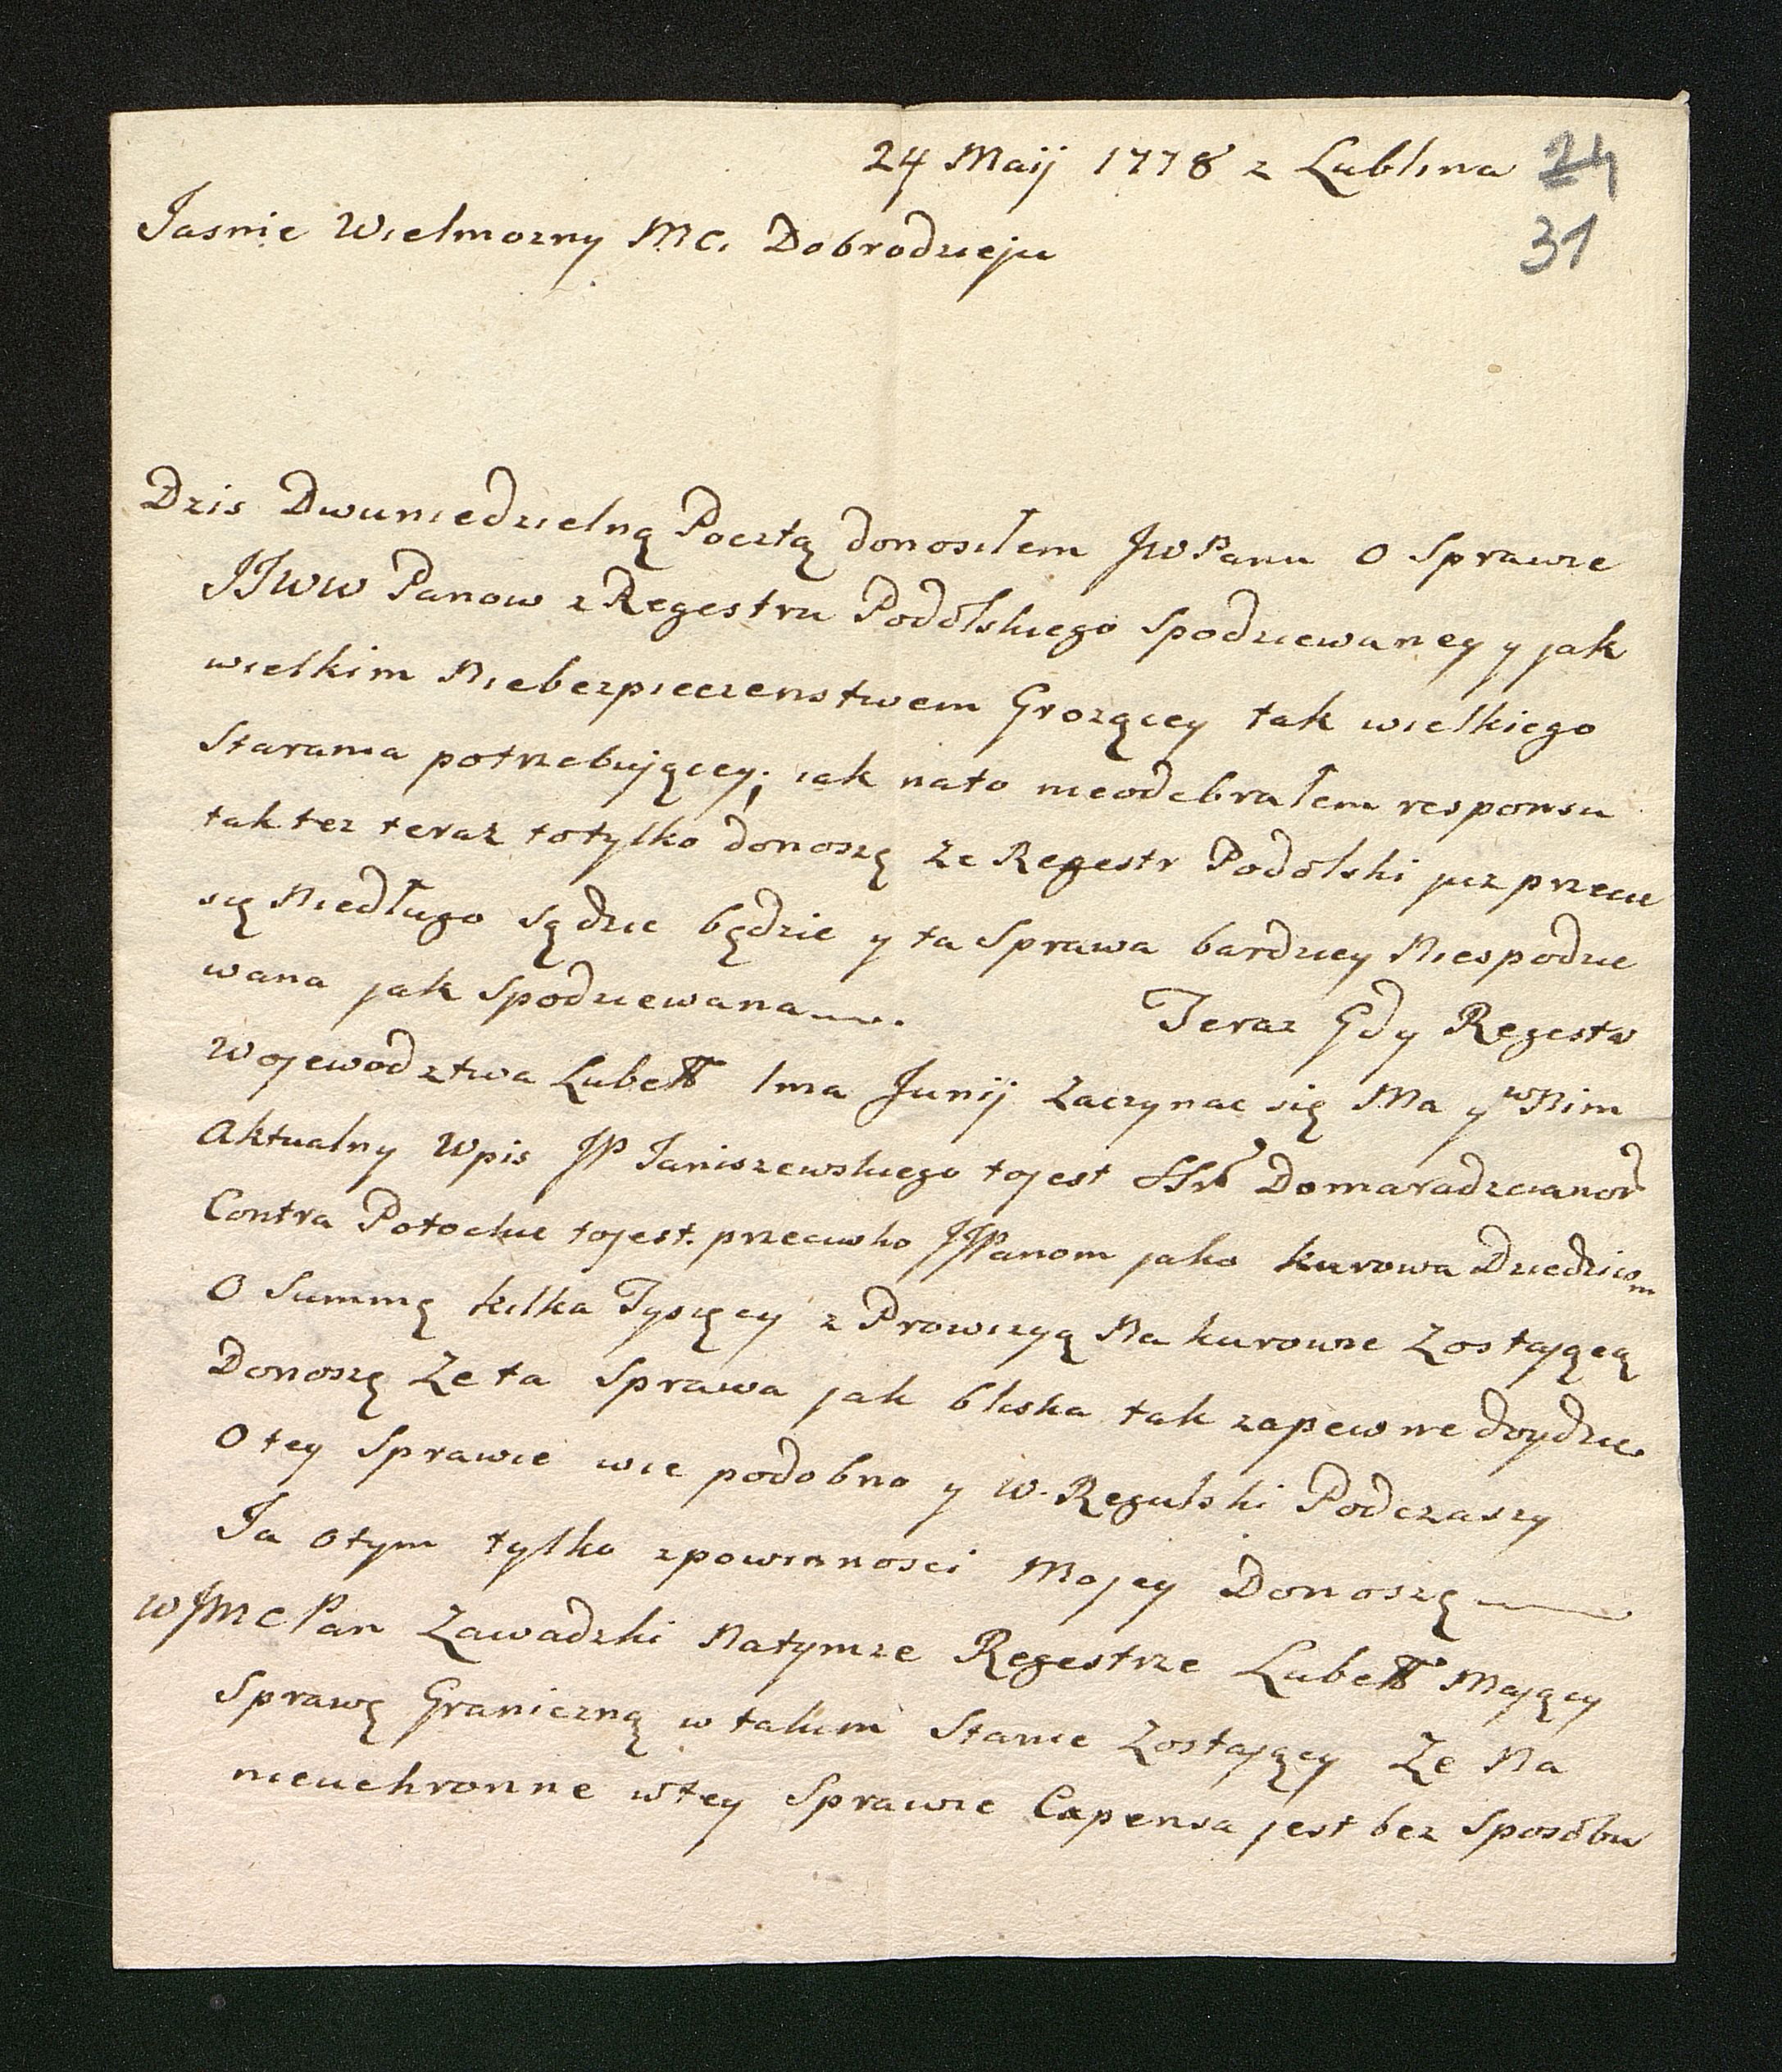 24 Maij 1778 z Lublina 24
31
Jasnie Wielmozny M C. Dobrodzieju
Dzis Dwuniedzielną Pocztą donosiłem JWPanu o Sprawie
JJWW Panow z Regestru Podolskiego Spodziewaney y jak
wielkim Niebezpieczenstwem Grozącey tak wielkiego
Starania potrzebującey; iak nato nieodebrałem responsu
taktez teraz totylko donoszę ze Regestr Podolski juz przecie
się Niedługo Sądzic będzie y ta Sprawa bardziey Niespodzie
wana jak Spodziewana.
Teraz Gdy Regestr
Wojewodztwa Lube 1ma Junij Zaczynac się Ma y w Nim
Aktualny Wpis JP Janiszewskiego tojest Domaradzcianow
Contra Potockie tojest. przeciwko JJPanom jako Kurowa Dziedzicom
O Summę kilka Tysięcy z Prowizyą Na Kurowie Zostającą
Donoszę Ze ta Sprawa jak bliska tak zapewne doydzie
O tey Sprawie wie podobno y W. Regulski Podczaszy
Ja otym tylko zpowinnosci Mojey Donoszę
WJMC Pan Zawadzki Natymze Regestrze Lube Mający
Sprawę Graniczną w takim Stanie Zostający Ze Na
nieuchronne wtey Sprawie Expensa jest bez Sposobu